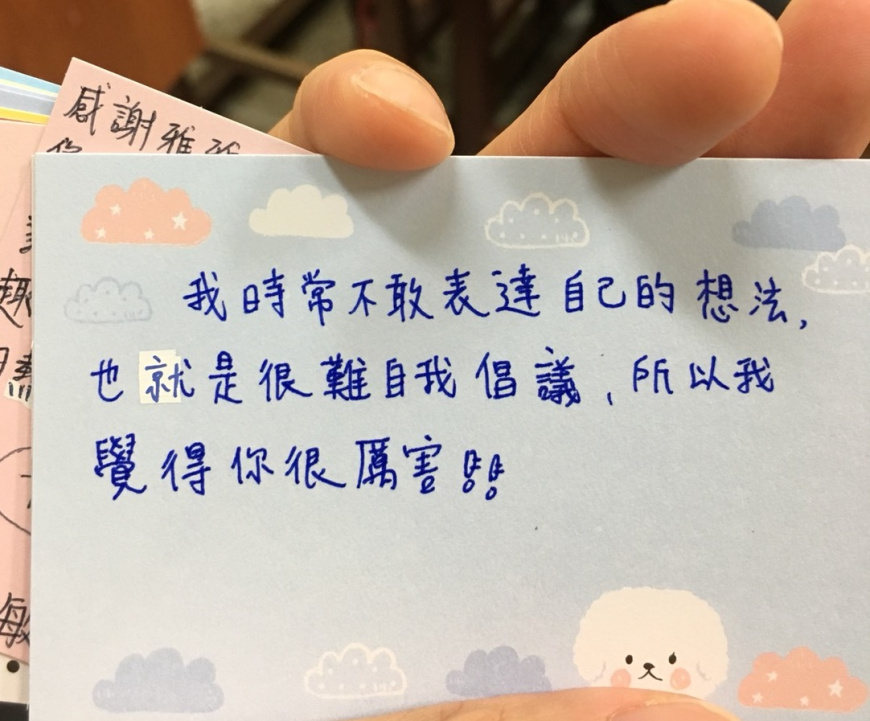 感謝雅
我時常不敢表達自己的想法,
也就是很難自我倡議,所以我
覺得你很厲害!!
趣
敏